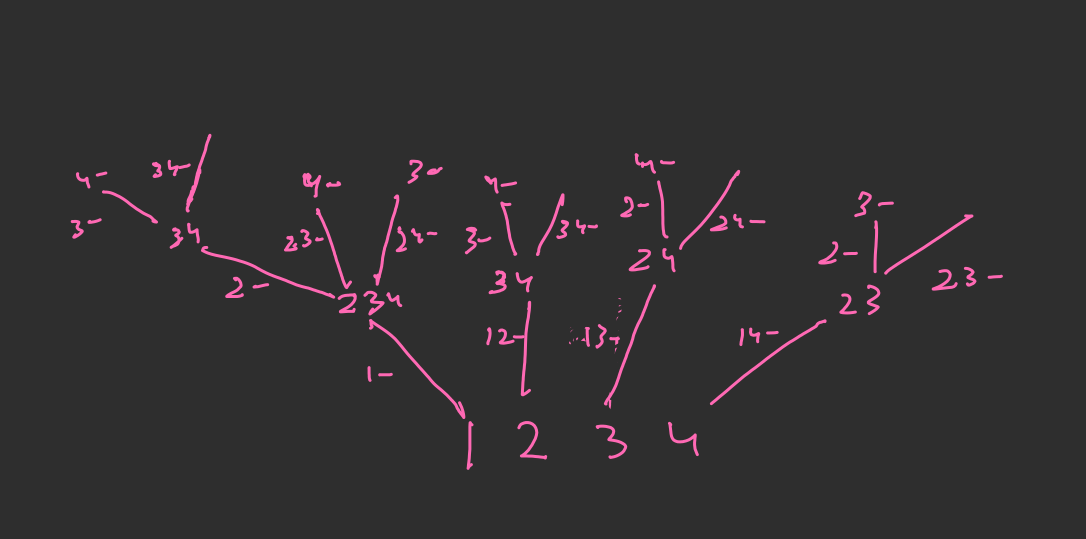 4-
34-
3-
34
2-
4-
3-
23-
24-
234
1-
4-
3-
34-
34
12-
4-
2-
24-
24
13-
3-
2-
23-
23
14-
1 2 3 4